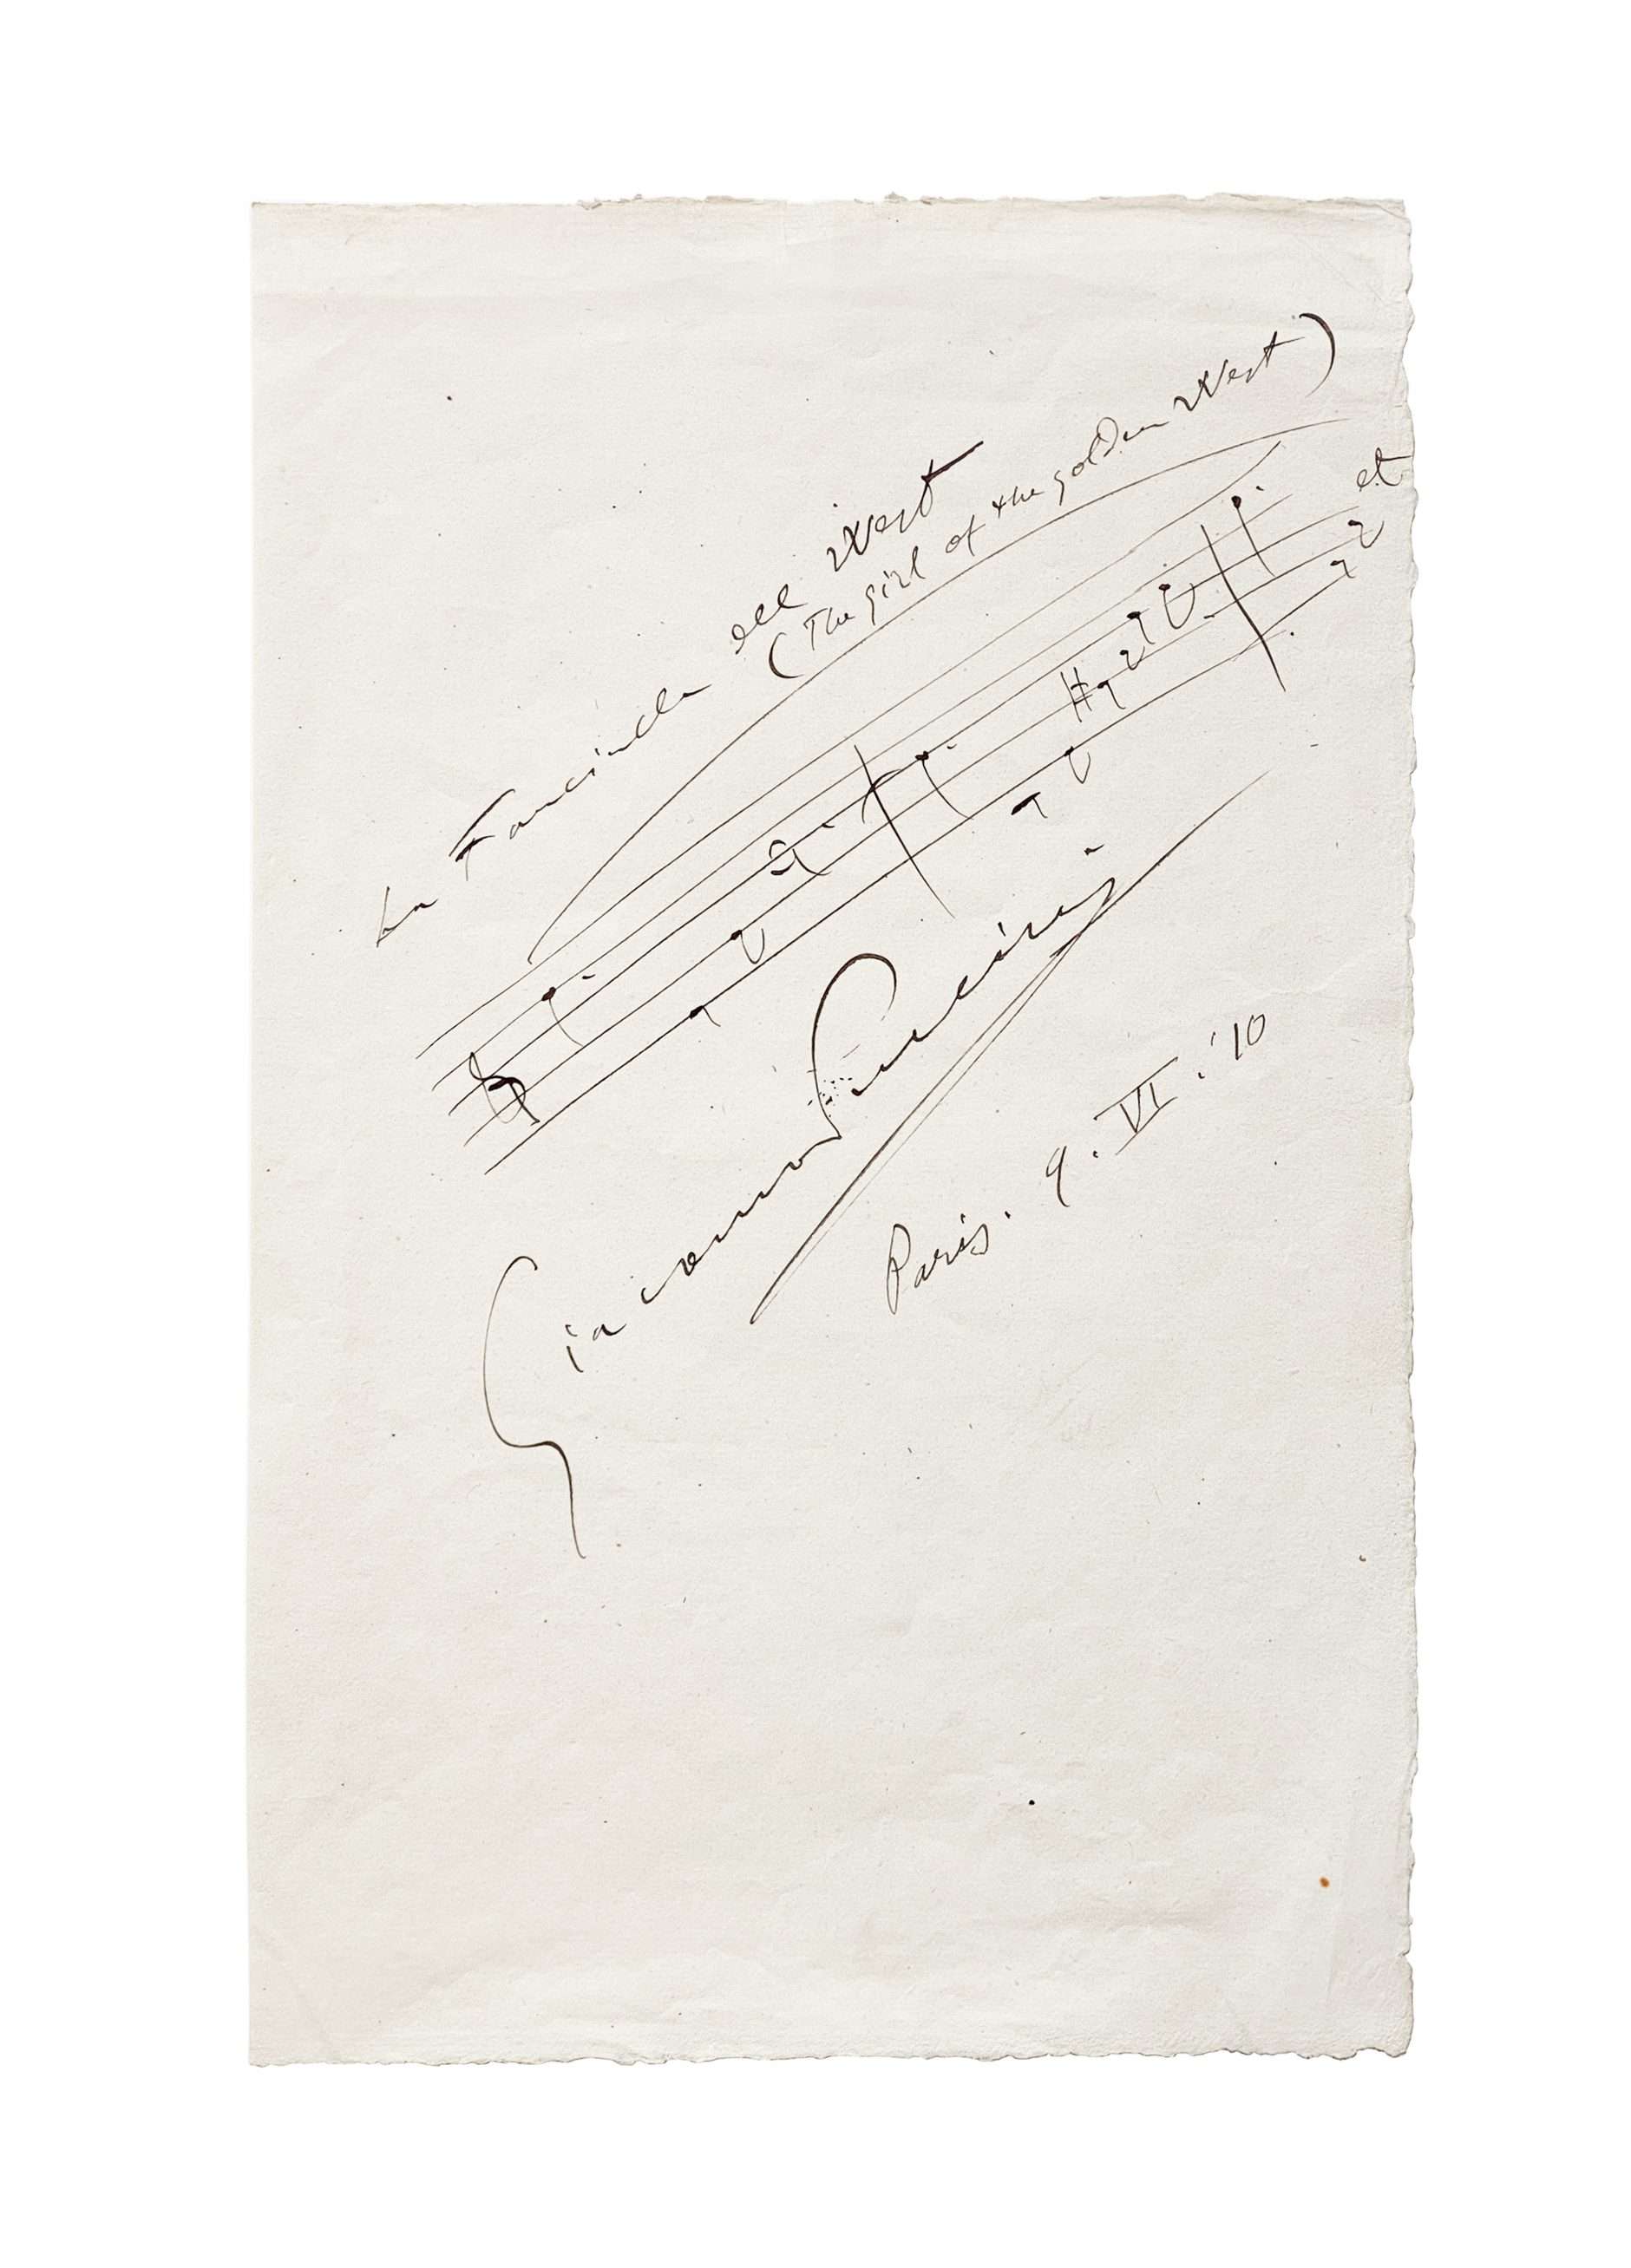 La Fanciulla del West
(The girl of the golden West)
et
Giacomo Puccini
Paris. 9. VI. '10